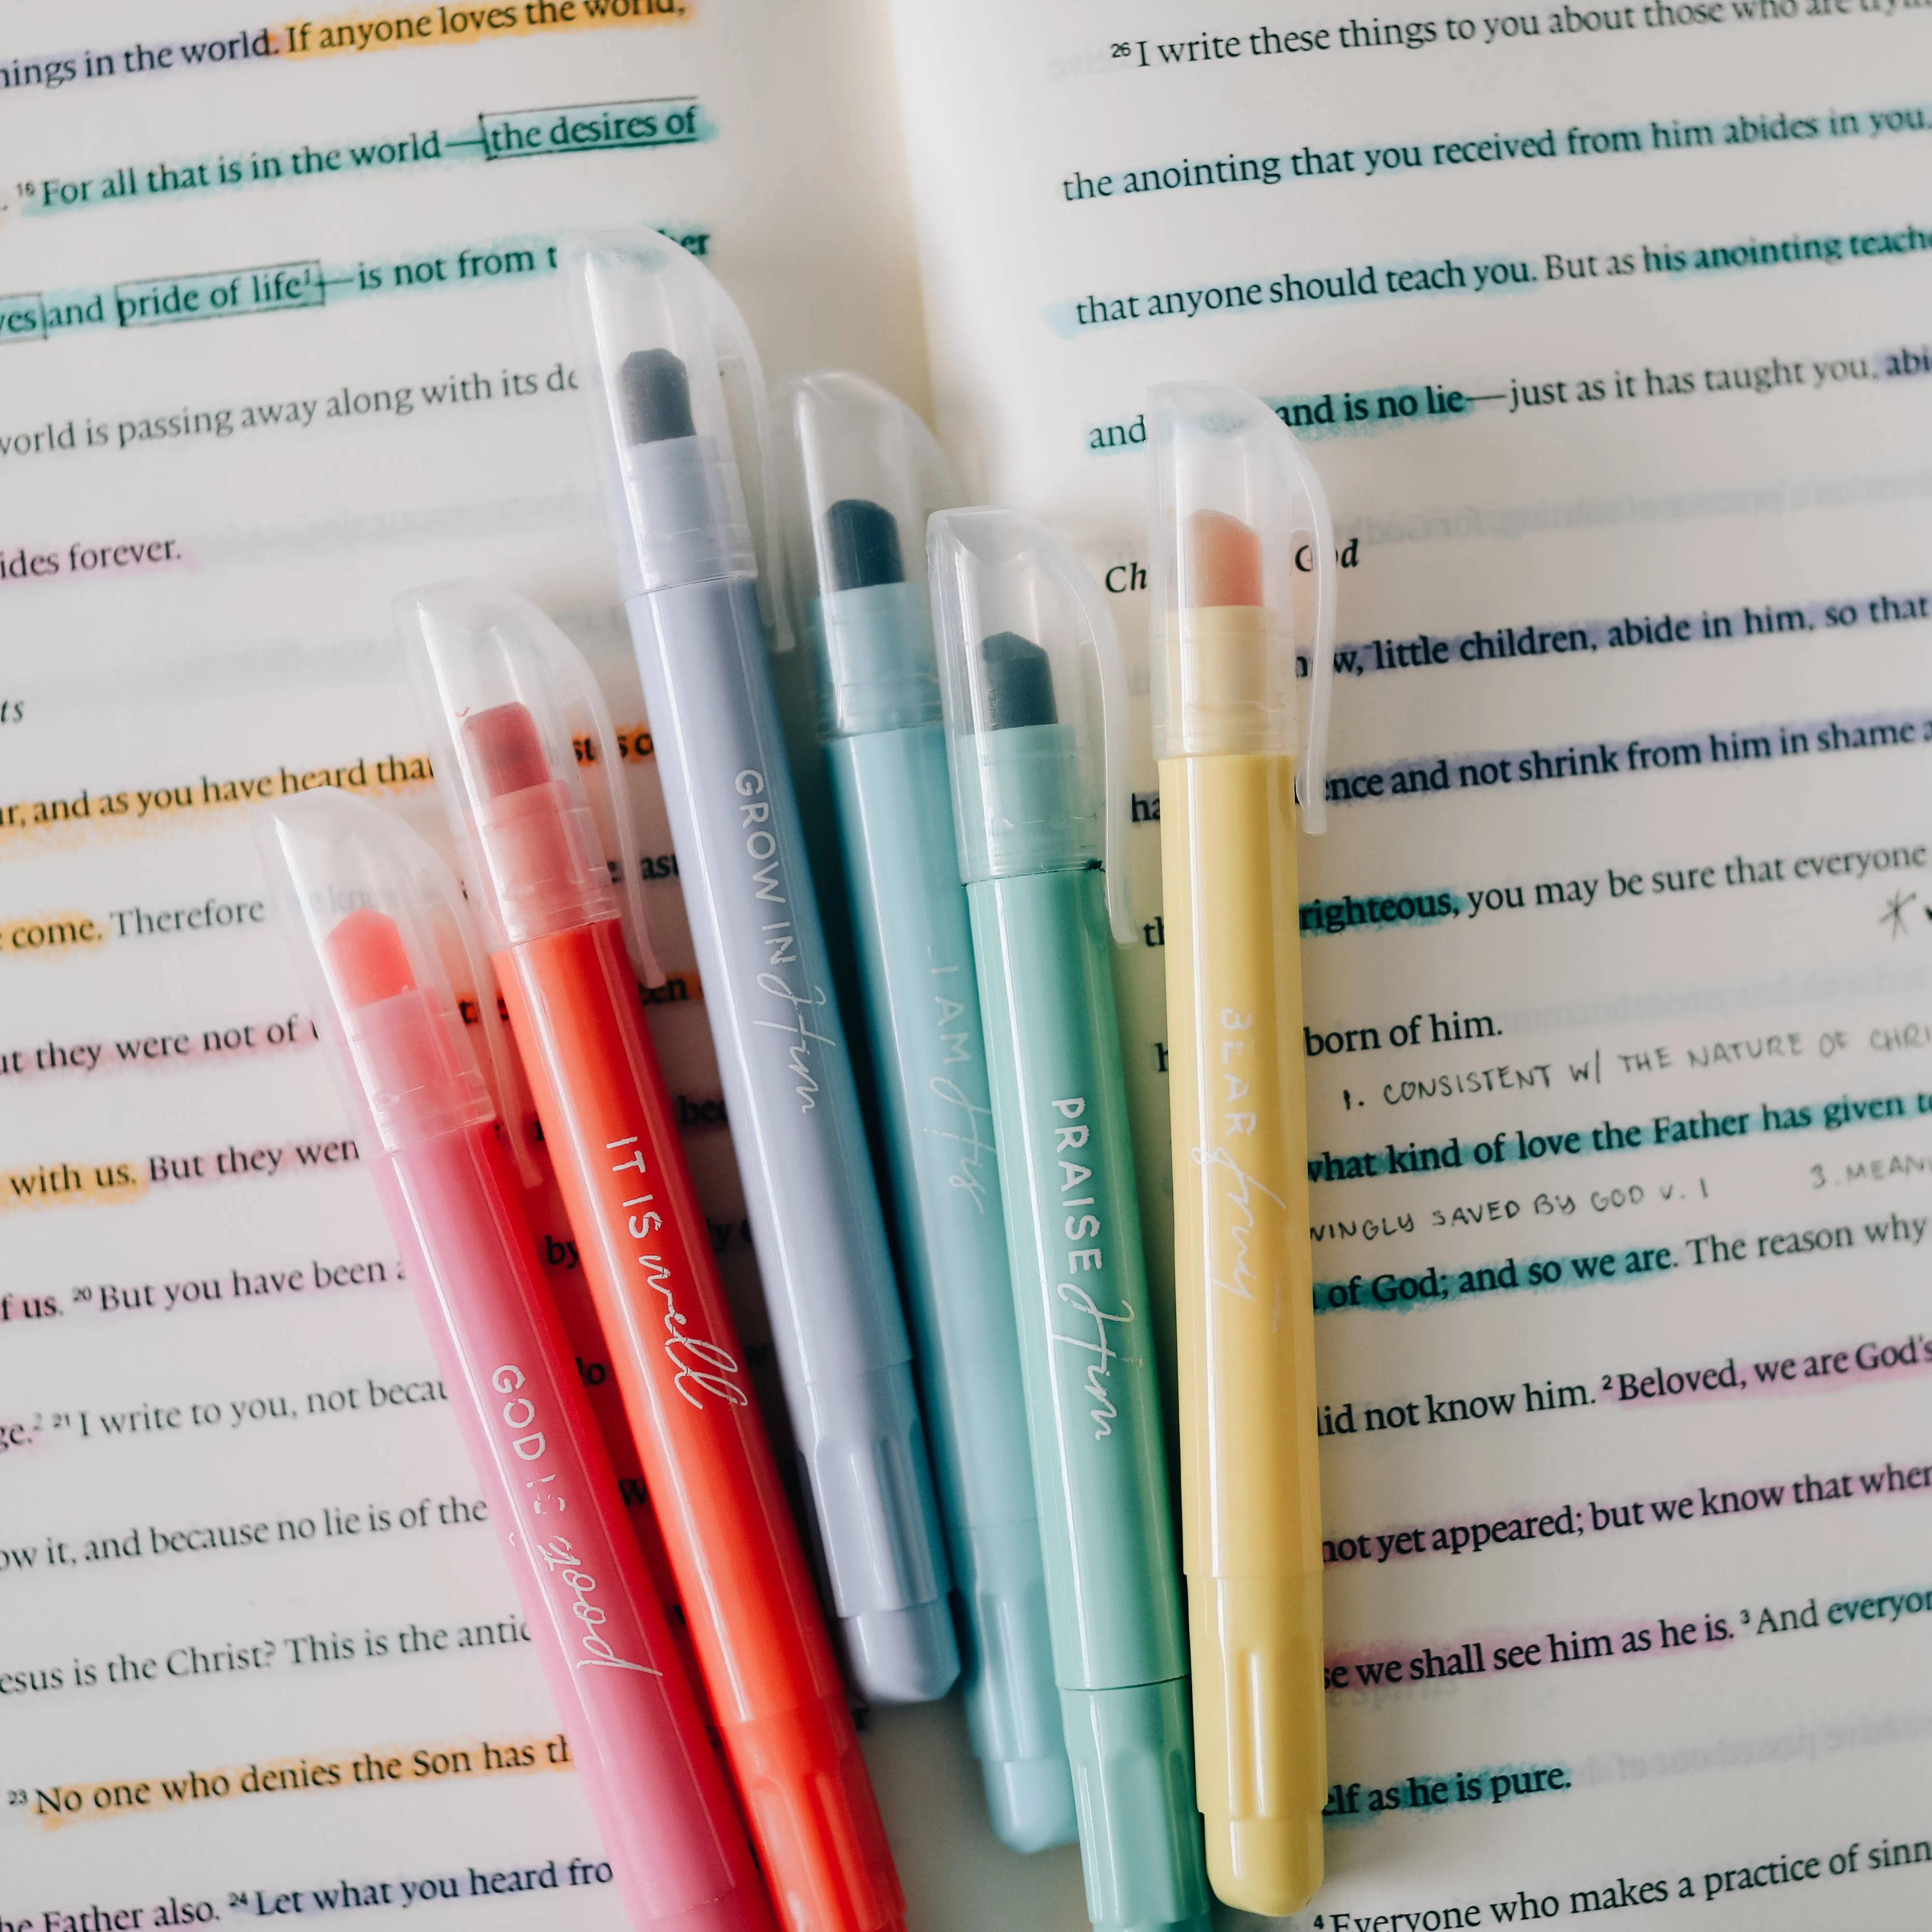 things in the world. If anyone loves the world,
16 For all that is in the world—the desires of
yes and pride of life1—is not from t er
world is passing away along with its de
ides forever.
ts
ur, and as you have heard that
come. Therefore
ut they were not of
with us. But they wen
f us. 20 But you have been a
ge.2 21 I write to you, not becau
ow it, and because no lie is of the
esus is the Christ? This is the antic
23 No one who denies the Son has th
he Father also. 24 Let what you heard fro
26 I write these things to you about those who are
the anointing that you received from him abides in you,
that anyone should teach you. But as his anointing teache
and and is no lie—just as it has taught you, abi
Ch God
now, little children, abide in him, so that
ha ence and not shrink from him in shame a
th righteous, you may be sure that everyone
born of him.
1. CONSISTENT W/ THE NATURE OF CHRI
what kind of love the Father has given to
VINGLY SAVED BY GOD V. 1 3. MEAN
of God; and so we are. The reason why
did not know him. 2 Beloved, we are God's
not yet appeared; but we know that when
se we shall see him as he is. 3 And everyon
elf as he is pure.
4 Everyone who makes a practice of sinn
GOD IS good
IT IS well
GROW IN Him
I AM His
PRAISE Him
BEAR fruit